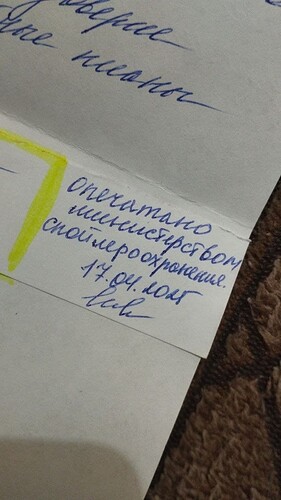 ные пионы
опечатано
министерством
спойлероохранения.
17.04.2025